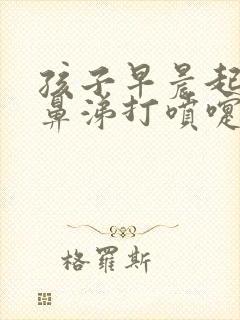 孩子早晨起
鼻涕打噴嚏
格羅斯